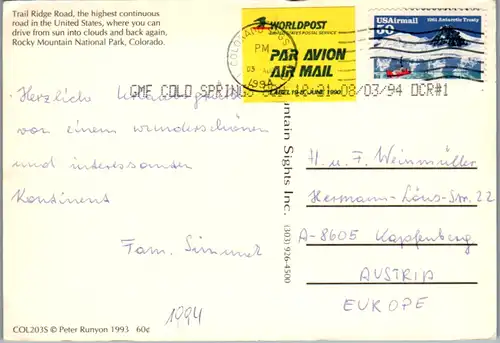 Trail Ridge Road, the highest continuous
road in the United States, where you can
drive from sun into clouds and back again,
Rocky Mountain National Park, Colorado.
WORLDPOST
UNITED STATES POSTAL SERVICE
PAR AVION
AIR MAIL
LABEL 19-B, JUNE 1990
USAirmail
50
1991 Antarctic Treaty
PM
1994
GMF COLO SPRINGS 08/03/94 OCR#1
Herzliche Urlaubsgrüße
von einem wunderschönen
und interessanten
Kontinent
Fam.
1994
H. u. F. Weinmüller
Hermann-Löns-Str. 22
A-8605 Kapfenberg
AUSTRIA
EUROPE
Mountain Sights Inc. (303) 926-4500
COL203S © Peter Runyon 1993 60¢